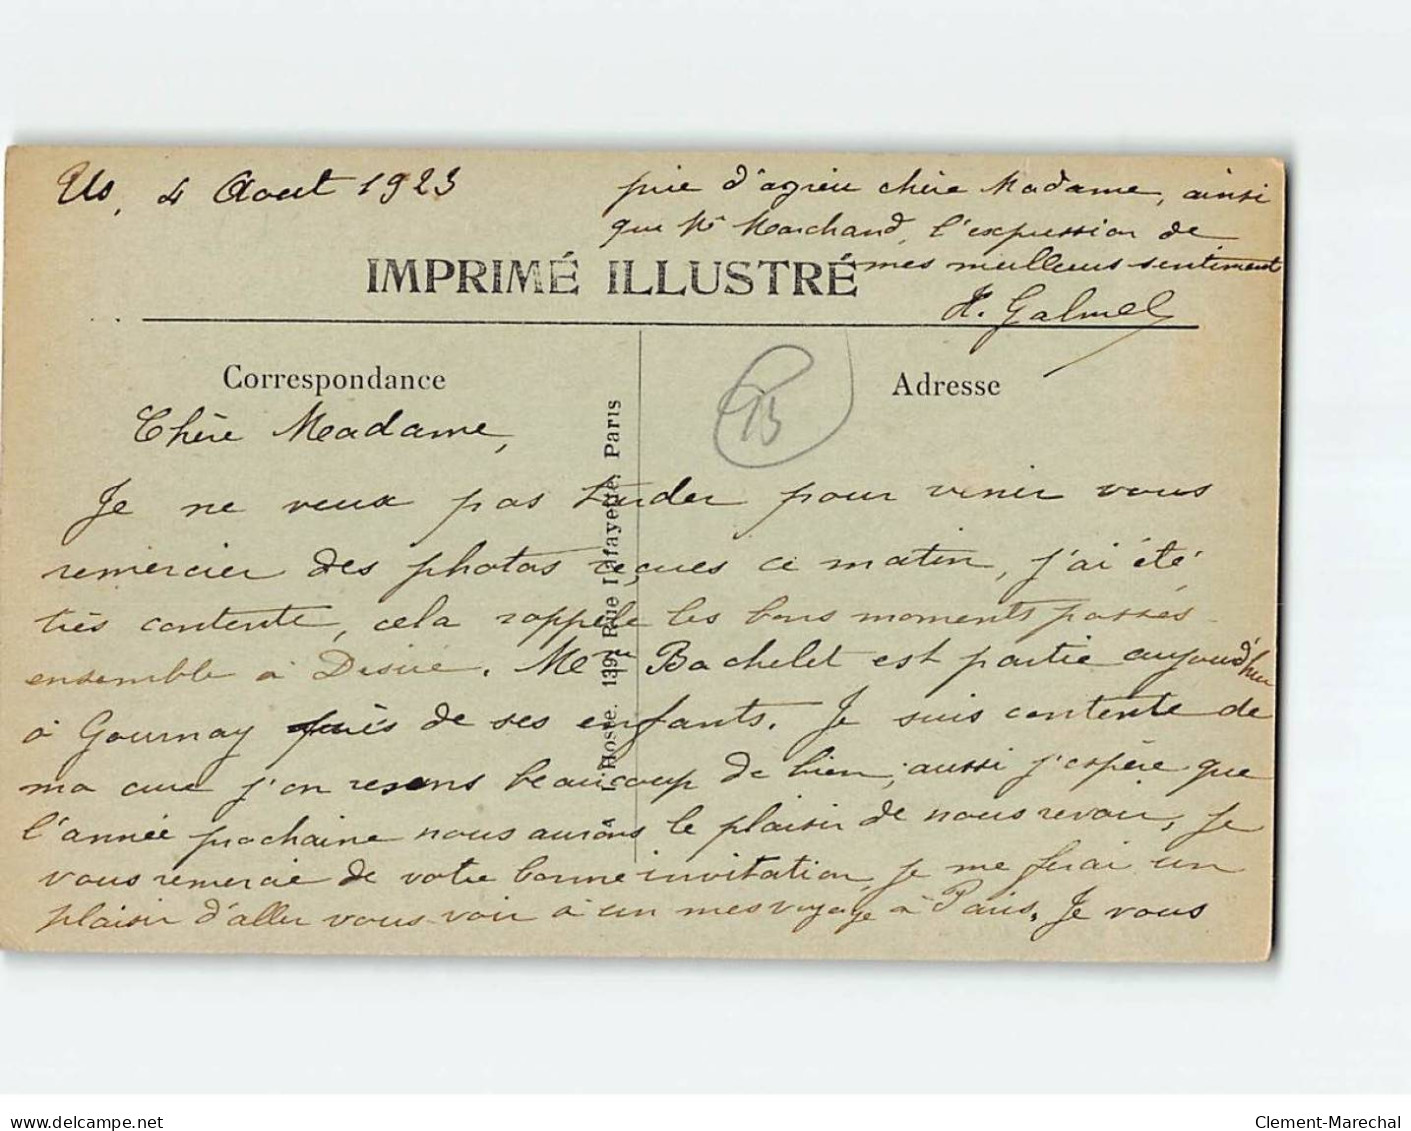 Us, 4 Aout 1923
IMPRIMÉ ILLUSTRÉ
Correspondance
Adresse
A. L'Hoste. 139, Rue Lafayette, Paris
15
Chère Madame,
Je ne veux pas tarder pour venir vous
remercier des photos reçues ce matin, j'ai été
très contente, cela rappelle les bons moments passés
ensemble à Désiré. Mme Bachelet est partie aujourd'hui
à Gournay près de ses enfants. Je suis contente de
ma cure j'en resens beaucoup de bien, aussi j'espère que
l'année prochaine nous aurons le plaisir de nous revoir, je
vous remercie de votre bonne invitation, je me ferai un
plaisir d'aller vous voir à un mes voyage à Paris. Je vous
prie d'agréer chère Madame, ainsi
que Mr Marchand, l'expression de
mes meilleurs sentiment
H. Galmel
www.delcampe.net
Clement-Marechal